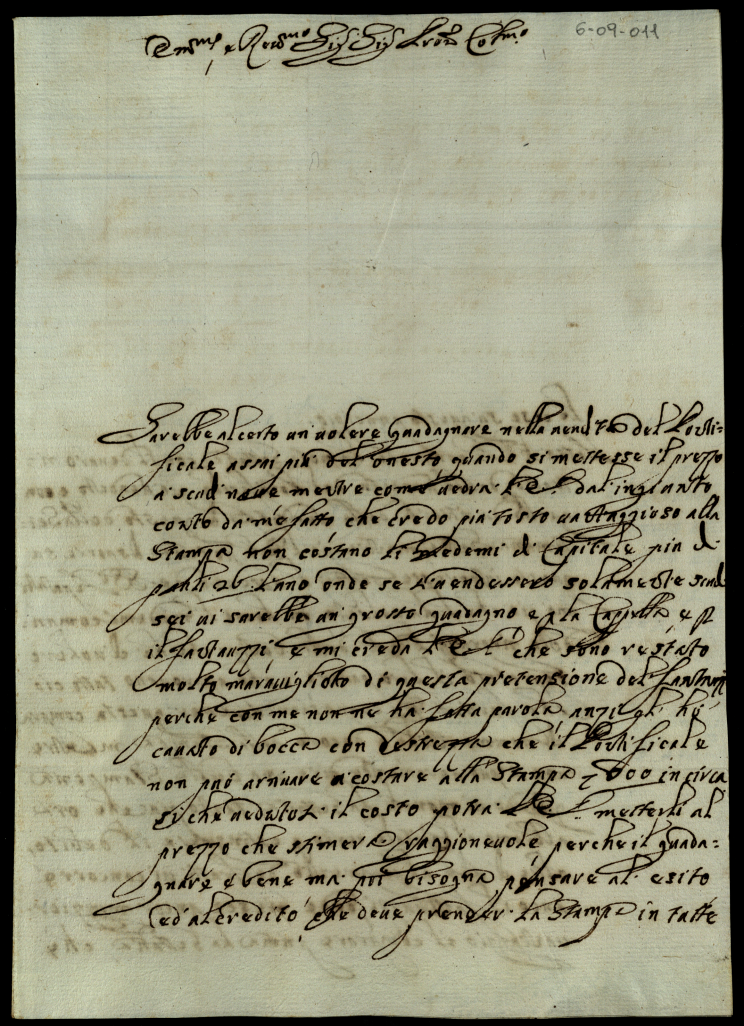 6-09-011
Em.mo e Reve.mo Sig.r Sig.r Pron Col.mo
Sarebbe al certo un volere guadagnare nella vendita del Ponti=
ficale assai più del onesto quando si mettesse il prezzo
a scudi nove mentre come vedrà V.E. dal ingiunto
conto da me fatto che credo più tosto vantaggioso alla
Stampa non costano li medemi di Capitale più di
pauli 26 l'uno onde se si vendessero solamente scudi
sei vi sarebbe un grosso guadagno e p la Cappella e p
il Fantauzzi e mi creda V.E. che sono restato
molto maravigliato di questa pretensione del Fantauzzi
perche con me non ne ha fatta parola anzi gli ho
cavato di bocca con destrezza che il Pontificale
non può arrivare a costare alla Stampa 800 in circa
si che veduto il costo potrà V.E. metterli al
prezzo che stimerà raggionevole perche il guada=
gnare è bene ma poi bisogna pensare al esito
ed al credito che deve prender la Stampa in tutte